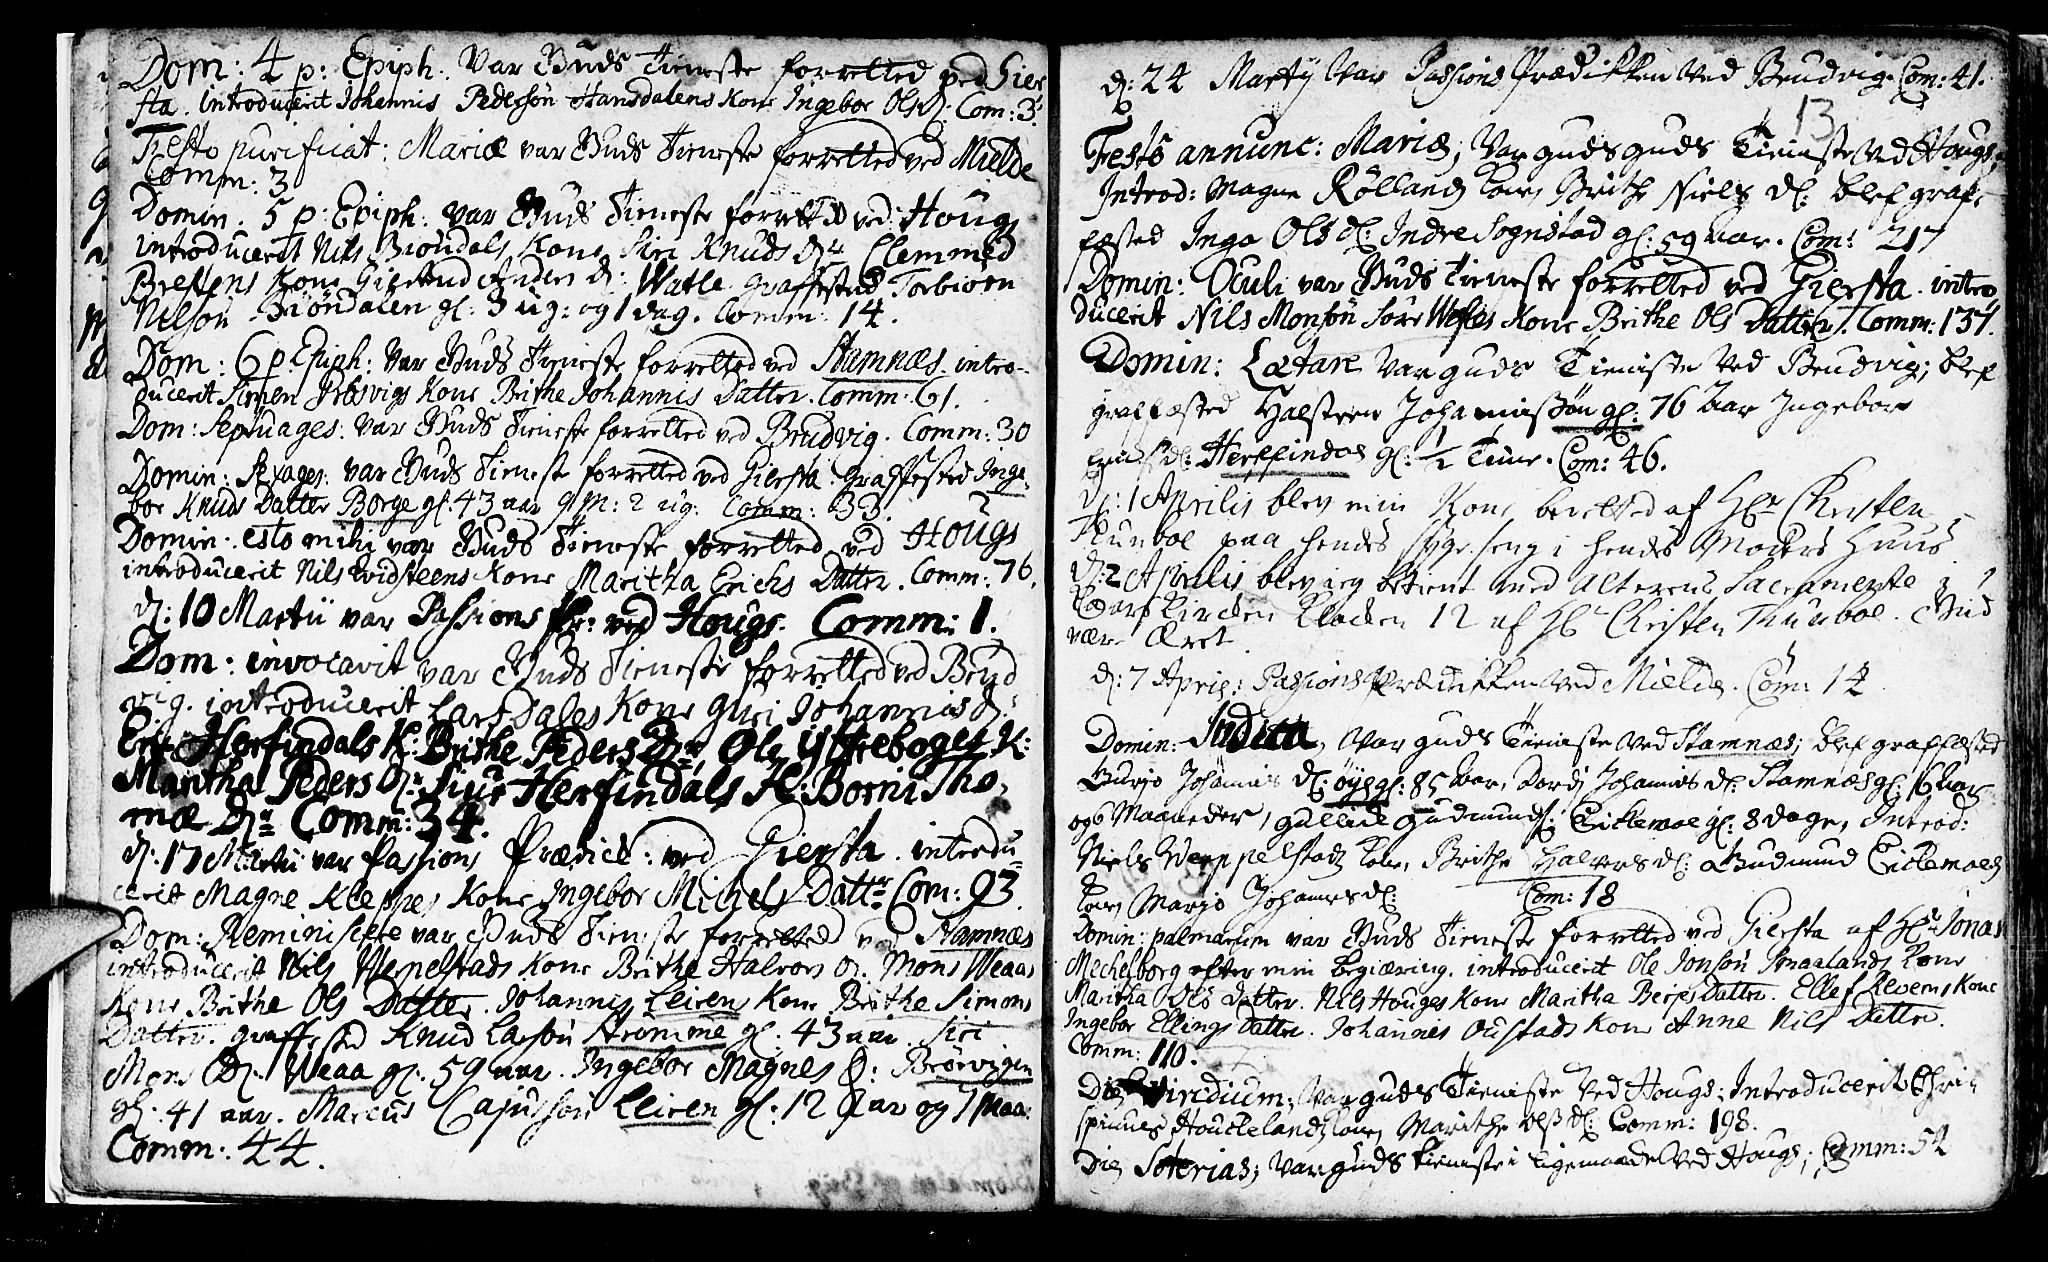 Dom: 4 p: Epiph: var Guds Tieneste forretted ved Gier
sta. introducerit Johannis Pedersøn Hansdalens Kone Ingebor Ols D: Com: 3.
Festo purificat: Mariæ var Guds Tieneste forretted ved Mielde
Comm: 3
Domin. 5 p: Epiph: var Guds Tieneste forretted ved Hougs
introducerit Nils Brøndals Kone Siri Knuds Dr Clemmed
Brekens Kone Giertrud Anders D: Watle graffested Torbiorn
Nilsøn Brøndalen gl: 3 ug: og 1 dag. Comm: 14.
Dom: 6 p. Epiph: var Guds Tieneste forretted ved Stamnæs. intro-
ducerit Simen Kone Brithe Johannis Datter. Comm: 61.
Dom: Septuages: var Guds Tieneste forretted ved Brudvig. Comm: 30
Domin: Sexages: var Guds Tieneste forretted ved Giersta. Graffested Inge-
bor Knuds Datter Borge gl: 43 aar 9 M: 2 ug: Comm: 33.
Domin. esto mihi var Guds Tieneste forretted ved Hougs
introducerit Nils Kone Maritha Erichs Datter. Comm: 76.
d: 10 Martii var Passions Pr: ved Hougs. Comm: 1.
Dom: invocavit var Guds Tieneste forretted ved Brud
vig. introducerit Lars Dales Kone Guri Johannis D:
Erik Herfindals K: Brithe Peders Dr, Ole K:
Maritha Peders D: Siur Herfindals K: Borni Tho,
mæ Dr Comm: 34.
d: 17 Martii var Passions Prædick: ved Giersta. introdu-
cerit Magne Kleppes Kone Ingebor Michels Dattr Com: 93.
Dom: Reminiscere var Guds Tieneste forretted ved Stamnæs
introducerit Nils Wernelstads Kone Brithe Halvors D. Mons Weaas
Kone Brithe Ols Datter. Johannis Leirens Kone Brithe Simons
Datter. graffested Knud Larsøn Stromme gl: 43 aar. Siri
Mons D: Weaa gl: 59 aar. Ingebor Magnes D: Brørvigen
gl: 41 aar. Marcus Cajussøn Leiren gl: 12 Aar og 7 maa:
Comm: 44.
d: 24 Martij var Passions Prædikken ved Brudvig. Com: 41.
13
Festo annunc: Mariæ; var guds guds Tieniste ved Hougs;
Introd: Magne Røllands Kone, Brithe Niels d: blef graf-
fæsted Inga Ols d: Indre Sognstad gl: 59 aar. Com: 217
Domin: Oculi var Guds Tieneste forretted ved Giersta. intro
ducerit Nils Monsøn Kone Brithe Ols Datter. Comm: 137.
Domin: Lætare var guds Tieniste ved Brudvig; blef
graffæsted Halsteen Johannissøn gl: 76 Aar Ingebor
d: Herffindal gl: 1/2 Time. Com: 46.
d: 1 Aprilis blev min Kone af Hr Christen
Thunboe paa hendes Syge Seng i hendes Moders Huus
d: 2 Aprilis blev ieg betient med Alterens Sacramente i
Kirken Klocken 12 af Hr Christen Thunboe. Gud
være Æret.
d: 7 April: Passions Prædikken ved Mielde. Com: 14
Domin: Judica, var guds Tieniste ved Stamnæs; blef graffæsted
Gurjo Johannis d: øye gl: 85 Aar, Dordi Johannis d: Stamnæs gl: 16 Aar
og 6 Maaneder, gullick Gudmunds: Eickemoe gl: 8 dage, Introd:
Niels Werppelstads Kone, Brithe Halvors d: Gudmund Eickemoes
Kone Marjo Johannes d: Com: 18
Domin: palmarum var Guds Tieneste forretted ved Giersta af Hr Jonas
Mechelborg efter min begiæring. introducerit Ole Jonsøn Smaalands Kone
Maritha Ols Datter. Nils Houges Kone Maritha Berges Datter. Ellef Kone
Ingebor Ellings Datter. Johannes Oustads Kone Anne Nils Datter.
Comm: 110.
Die Viridium; var guds Tieniste ved Hougs; Introducerit Chri-
Houclelands Kone, Marithe Ols d: Comm: 198.
Die Soterias; var guds Tieniste i ligemaade ved Hougs; Comm: 52